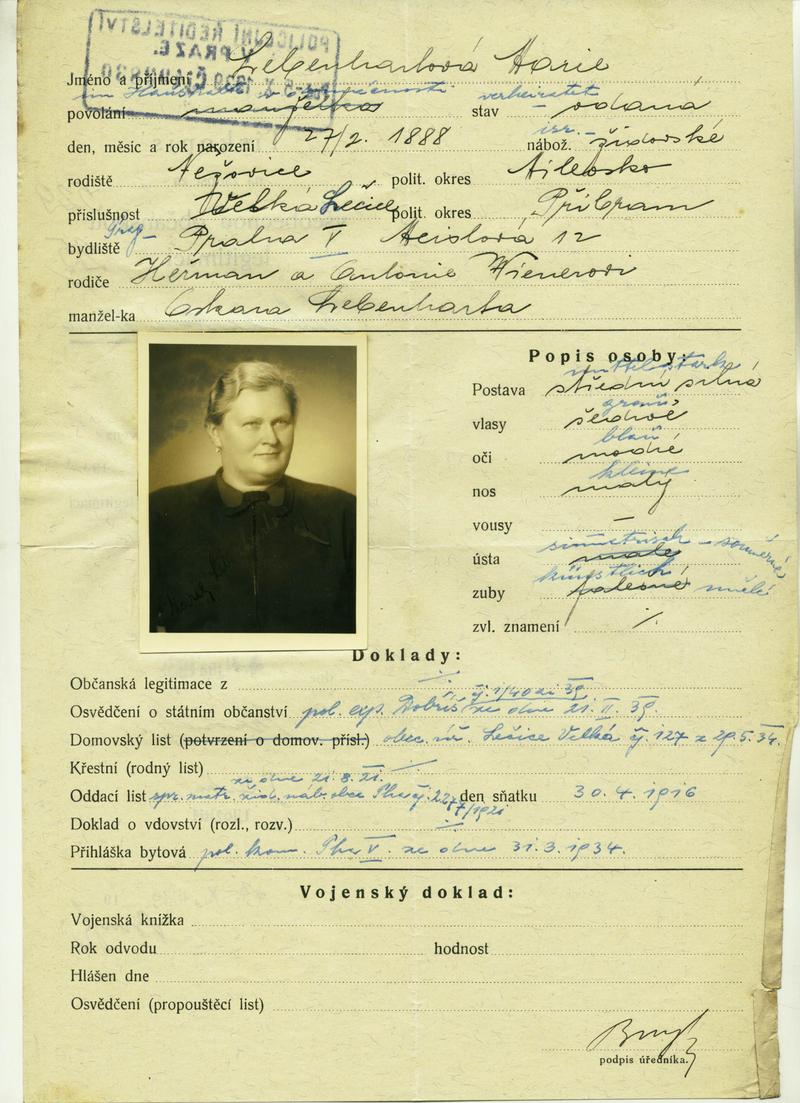 POLICEJNÍ ŘEDITELSTVÍ
V PRAZE.
Jméno a příjmení Lebenhartová Marie
im Haushalt v domácnosti verheiratet
povolání manželka stav vdaná
isr. -
den, měsíc a rok narození 27/2. 1888 nábož. židovské
rodiště Nežovice polit. okres Mirovsko
příslušnost Velká Lečice polit. okres Příbram
Prag -
bydliště Praha V Meislova 12
rodiče Heřman a Antonie Wienerovi
manžel-ka Oskara Lebenharta
Popis osoby:
mittelstark
Postava střední silná
grau
vlasy šedivé
blau
oči modré
kleine
nos malý
vousy —
simetrisch - souměrná
ústa malé
künstlich
zuby falešné umělé
zvl. znamení ·/.
Doklady:
Občanská legitimace z ·/.
čj. 1/40 ai 39
Osvědčení o státním občanství pol. exp. Dobříš ze dne 21. II. 39.
Domovský list (potvrzení o domov. přísl.) obec. úř. Lečice Velká čj. 127 z 29.5.34.
Křestní (rodný list) —
ze dne 21.8.21.
Oddací list spr. matr. žid. náb. obce Pha čj. 227 den sňatku 30.4.1916
7/1921
Doklad o vdovství (rozl., rozv.) ·/.
Přihláška bytová pol. kom. Pha V. ze dne 31.3.1934.
Vojenský doklad:
Vojenská knížka
Rok odvodu hodnost
Hlášen dne
Osvědčení (propouštěcí list)
podpis úředníka.